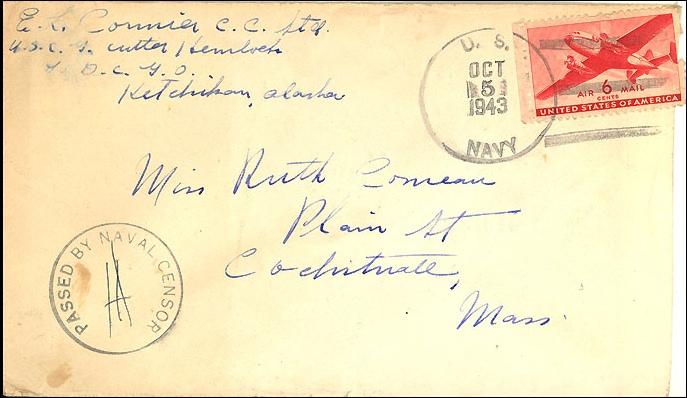 E. R. Cormier C. C. Std.
U.S.C.G. cutter Hemlock
% D.C.G.O.
Ketchikan, Alaska
U. S.
OCT
5
1943
NAVY
AIR 6 MAIL
CENTS
UNITED STATES OF AMERICA
Miss Ruth Comeau
Plain St
Cochituate,
Mass.
PASSED BY NAVAL CENSOR